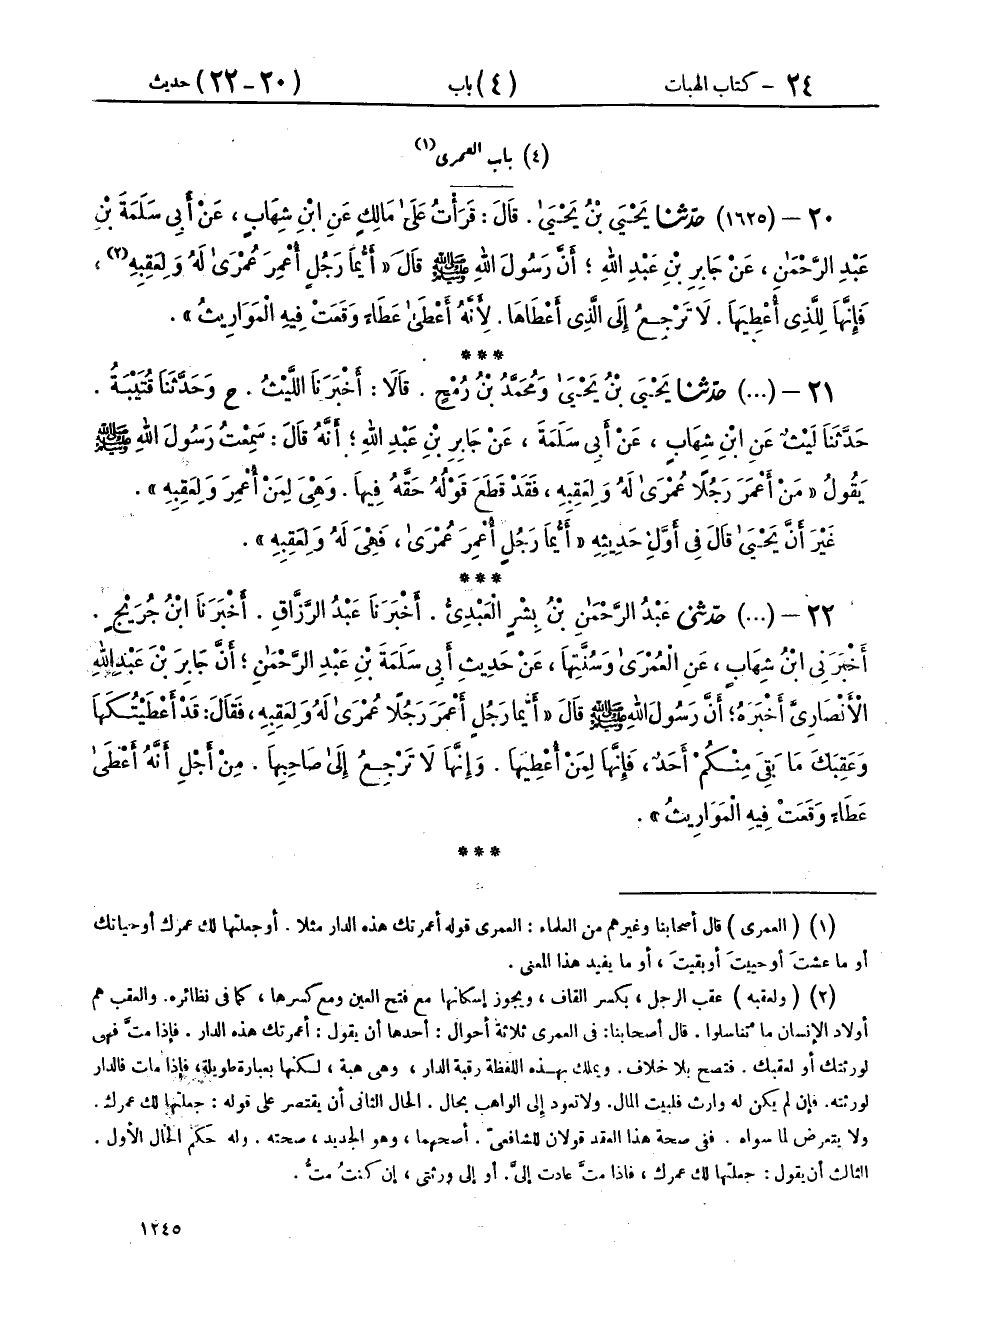 ٢٤ - كتاب الهبات (٤) باب (٢٠-٢٢) حديث
(٤) باب العمرى(١)
٢٠ - (١٦٢٥) حَدَّثَنَا يَحْيَىٰ بْنُ يَحْيَىٰ. قَالَ: قَرَأْتُ عَلَىٰ مَالِكٍ عَنِ ابْنِ شِهَابٍ، عَنْ أَبِي سَلَمَةَ بْنِ
عَبْدِ الرَّحْمَٰنِ، عَنْ جَابِرِ بْنِ عَبْدِ اللهِ؛ أَنَّ رَسُولَ اللهِ ﷺ قَالَ « أَيُّمَا رَجُلٍ أُعْمِرَ عُمْرَىٰ لَهُ وَلِعَقِبِهِ(٢)،
فَإِنَّهَا لِلَّذِي أُعْطِيَهَا. لَا تَرْجِعُ إِلَى الَّذِي أَعْطَاهَا. لِأَنَّهُ أَعْطَىٰ عَطَاءً وَقَعَتْ فِيهِ الْمَوَارِيثُ ».
***
٢١ - (...) حَدَّثَنَا يَحْيَىٰ بْنُ يَحْيَىٰ وَمُحَمَّدُ بْنُ رُمْحٍ. قَالَا: أَخْبَرَنَا اللَّيْثُ. ح وَحَدَّثَنَا قُتَيْبَةُ.
حَدَّثَنَا لَيْثٌ عَنِ ابْنِ شِهَابٍ، عَنْ أَبِي سَلَمَةَ، عَنْ جَابِرِ بْنِ عَبْدِ اللهِ؛ أَنَّهُ قَالَ: سَمِعْتُ رَسُولَ اللهِ ﷺ
يَقُولُ « مَنْ أَعْمَرَ رَجُلًا عُمْرَىٰ لَهُ وَلِعَقِبِهِ، فَقَدْ قَطَعَ قَوْلُهُ حَقَّهُ فِيهَا. وَهْيَ لِمَنْ أُعْمِرَ وَلِعَقِبِهِ ».
غَيْرَ أَنَّ يَحْيَىٰ قَالَ فِي أَوَّلِ حَدِيثِهِ « أَيُّمَا رَجُلٍ أُعْمِرَ عُمْرَىٰ، فَهْيَ لَهُ وَلِعَقِبِهِ ».
***
٢٢ - (...) حَدَّثَنِي عَبْدُ الرَّحْمَٰنِ بْنُ بِشْرٍ الْعَبْدِيُّ. أَخْبَرَنَا عَبْدُ الرَّزَّاقِ. أَخْبَرَنَا ابْنُ جُرَيْجٍ.
أَخْبَرَنِي ابْنُ شِهَابٍ، عَنِ الْعُمْرَىٰ وَسُنَّتِهَا، عَنْ حَدِيثِ أَبِي سَلَمَةَ بْنِ عَبْدِ الرَّحْمَٰنِ؛ أَنَّ جَابِرَ بْنَ عَبْدِ اللهِ
الْأَنْصَارِيَّ أَخْبَرَهُ؛ أَنَّ رَسُولَ اللهِ ﷺ قَالَ « أَيُّمَا رَجُلٍ أَعْمَرَ رَجُلًا عُمْرَىٰ لَهُ وَلِعَقِبِهِ، فَقَالَ: قَدْ أَعْطَيْتُكَهَا
وَعَقِبَكَ مَا بَقِيَ مِنْكُمْ أَحَدٌ، فَإِنَّهَا لِمَنْ أُعْطِيَهَا. وَإِنَّهَا لَا تَرْجِعُ إِلَىٰ صَاحِبِهَا. مِنْ أَجْلِ أَنَّهُ أَعْطَىٰ
عَطَاءً وَقَعَتْ فِيهِ الْمَوَارِيثُ ».
***
(١) (العمرى) قال أصحابنا وغيرهم من العلماء: العمرى قوله أعمرتك هذه الدار مثلا. أو جعلتها لك عمرك أو حياتك
أو ما عشتَ أو حييتَ أو بقيتَ، أو ما يفيد هذا المعنى.
(٢) (ولعقبه) عقب الرجل، بكسر القاف، ويجوز إسكانها مع فتح العين ومع كسرها، كما في نظائره. والعقب هم
أولاد الإنسان ما تناسلوا. قال أصحابنا: في العمرى ثلاثة أحوال: أحدها أن يقول: أعمرتك هذه الدار. فإذا متَّ فهي
لورثتك أو لعقبك. فتصح بلا خلاف. ويملك بهذه اللفظة رقبة الدار، وهي هبة، لكنها بعبارة طويلة، فإذا مات فالدار
لورثته. فإن لم يكن له وارث فلبيت المال. ولا تعود إلى الواهب بحال. الحال الثاني أن يقتصر على قوله: جعلتها لك عمرك.
ولا يتعرض لما سواه. ففي صحة هذا العقد قولان للشافعيّ. أصحهما، وهو الجديد، صحته. وله حكم الحال الأول.
الثالث أن يقول: جعلتها لك عمرك، فإذا متَّ عادت إليَّ. أو إلى ورثتي، إن كنتُ متُّ.
١٢٤٥